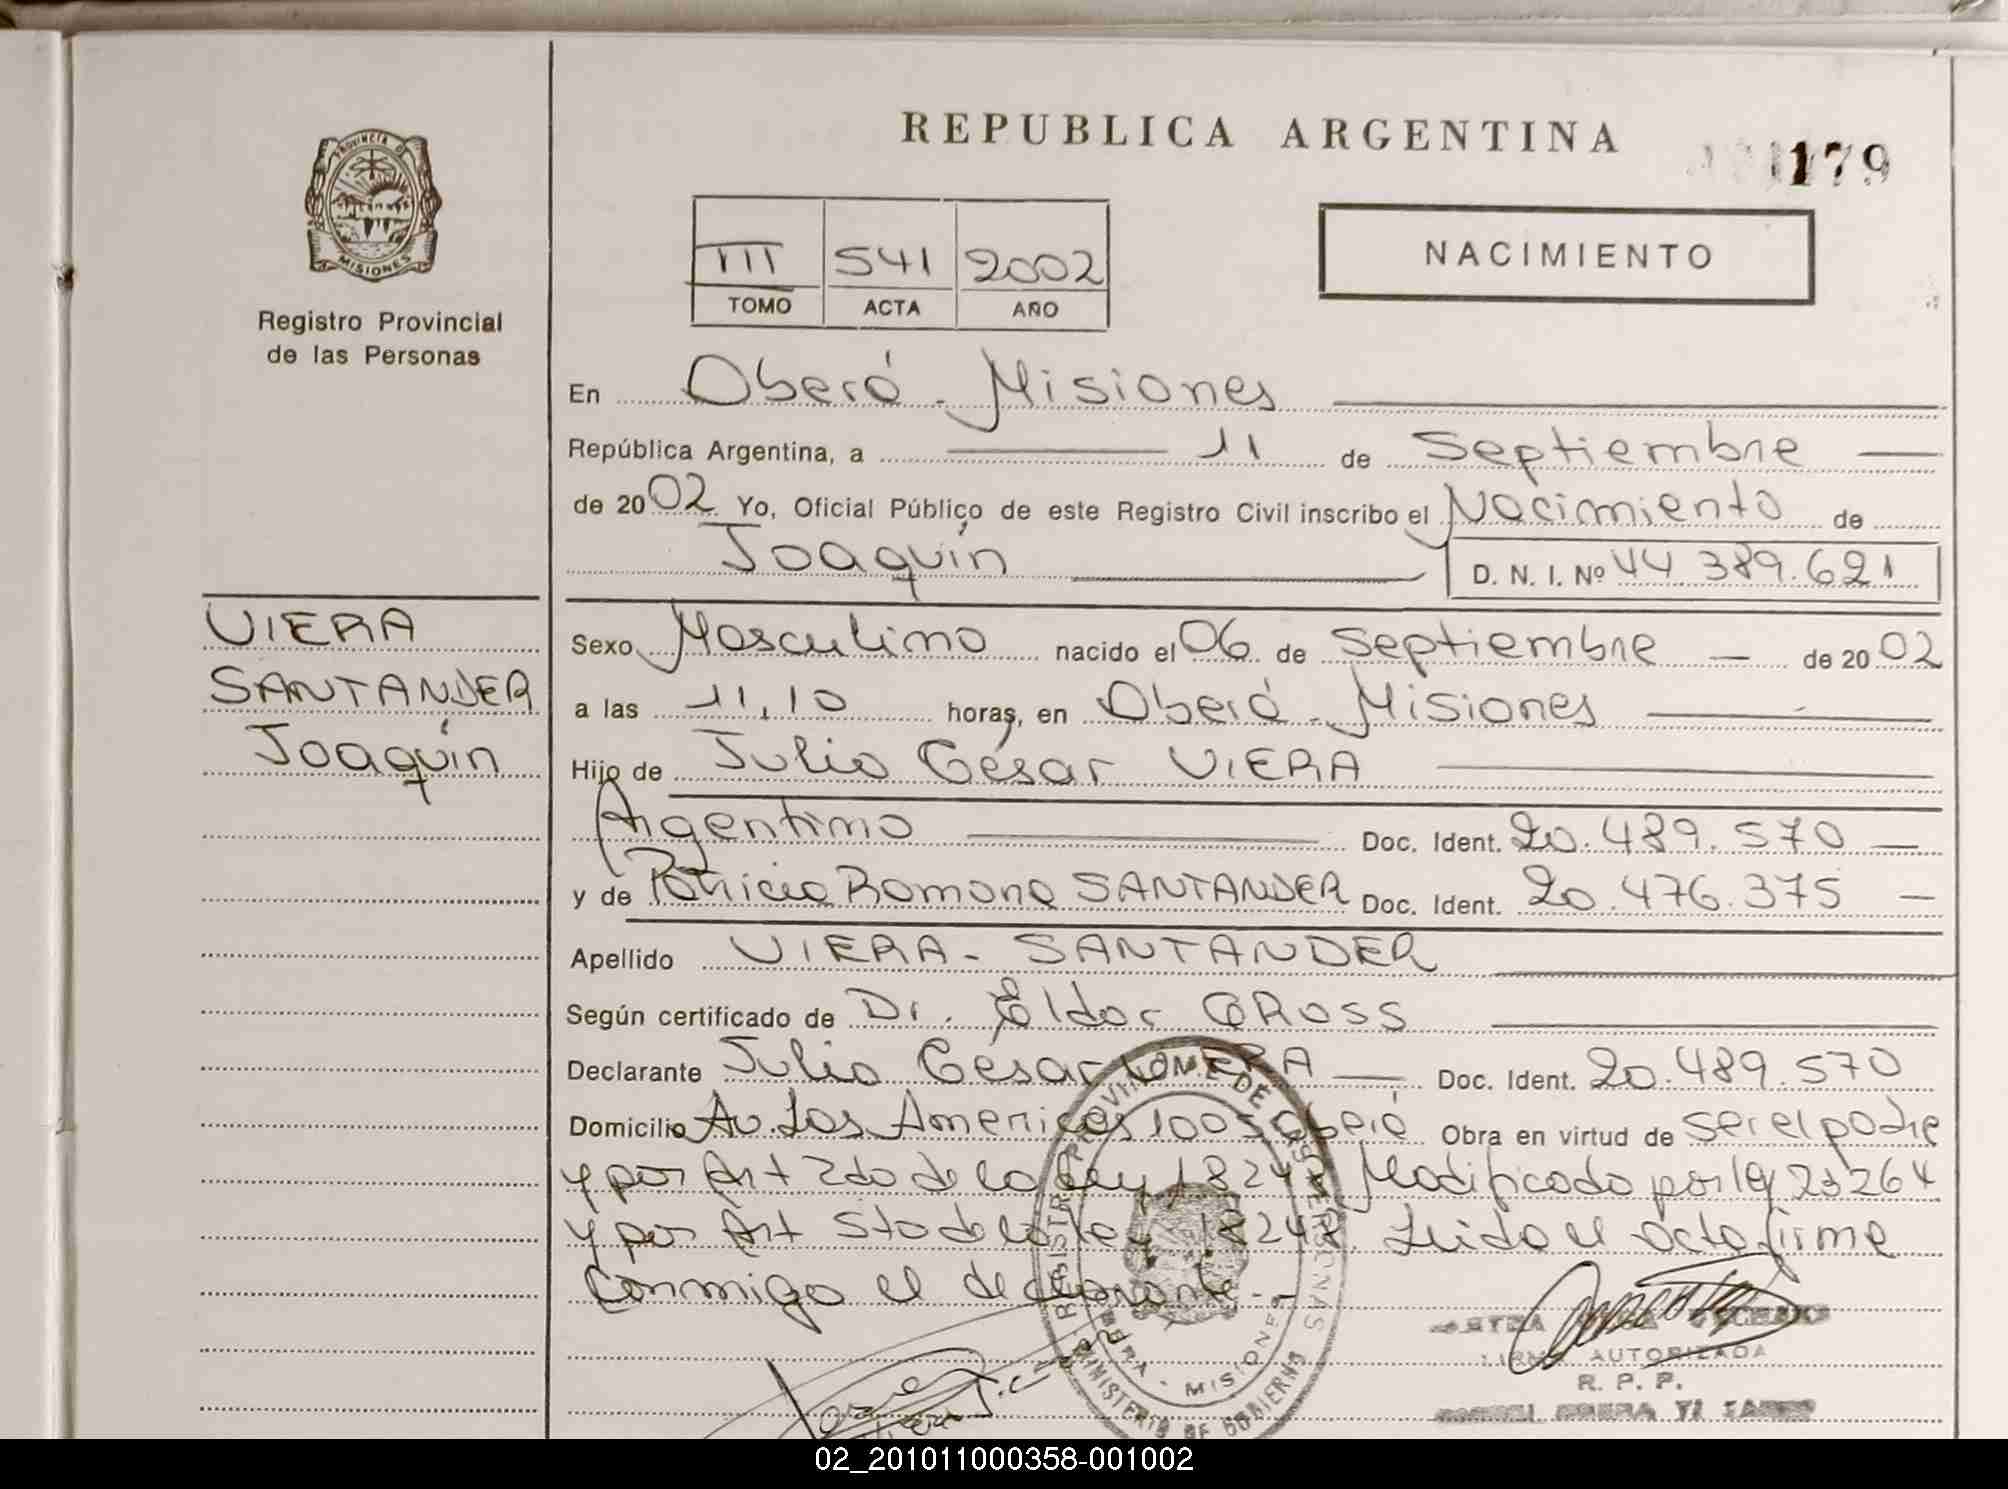 REPUBLICA ARGENTINA
179
PROVINCIA D
MISIONES
Registro Provincial
de las Personas
III 541 2002
TOMO ACTA AÑO
NACIMIENTO
En Oberá - Misiones
República Argentina, a 11 de Septiembre
de 2002 Yo, Oficial Público de este Registro Civil inscribo el Nacimiento de
Joaquín D. N. I. Nº 44 389.621
VIERA
SANTANDER
Joaquín
Sexo Masculino nacido el 06 de Septiembre de 2002
a las 11,10 horas, en Oberá - Misiones
Hijo de Julio César VIERA
Argentino Doc. Ident. 20.489.570
y de Patricia Ramona SANTANDER Doc. Ident. 20.476.375
Apellido VIERA - SANTANDER
Según certificado de Dr. Eldor GROSS
Declarante Julio Cesar VIERA Doc. Ident. 20.489.570
Domicilio Av. Las Americas 1005 Oberá Obra en virtud de ser el padre
y por Art 2do de la Ley 18248 Modificado por ley 23264
y por Art 5to de la ley 18248. Leido el acta firme
conmigo el declarante.-
REGISTRO PROVINCIAL DE LAS PERSONAS
OBERA - MISIONES
MINISTERIO DE GOBIERNO
FIRMA AUTORIZADA
R. P. P.
02_201011000358-001002